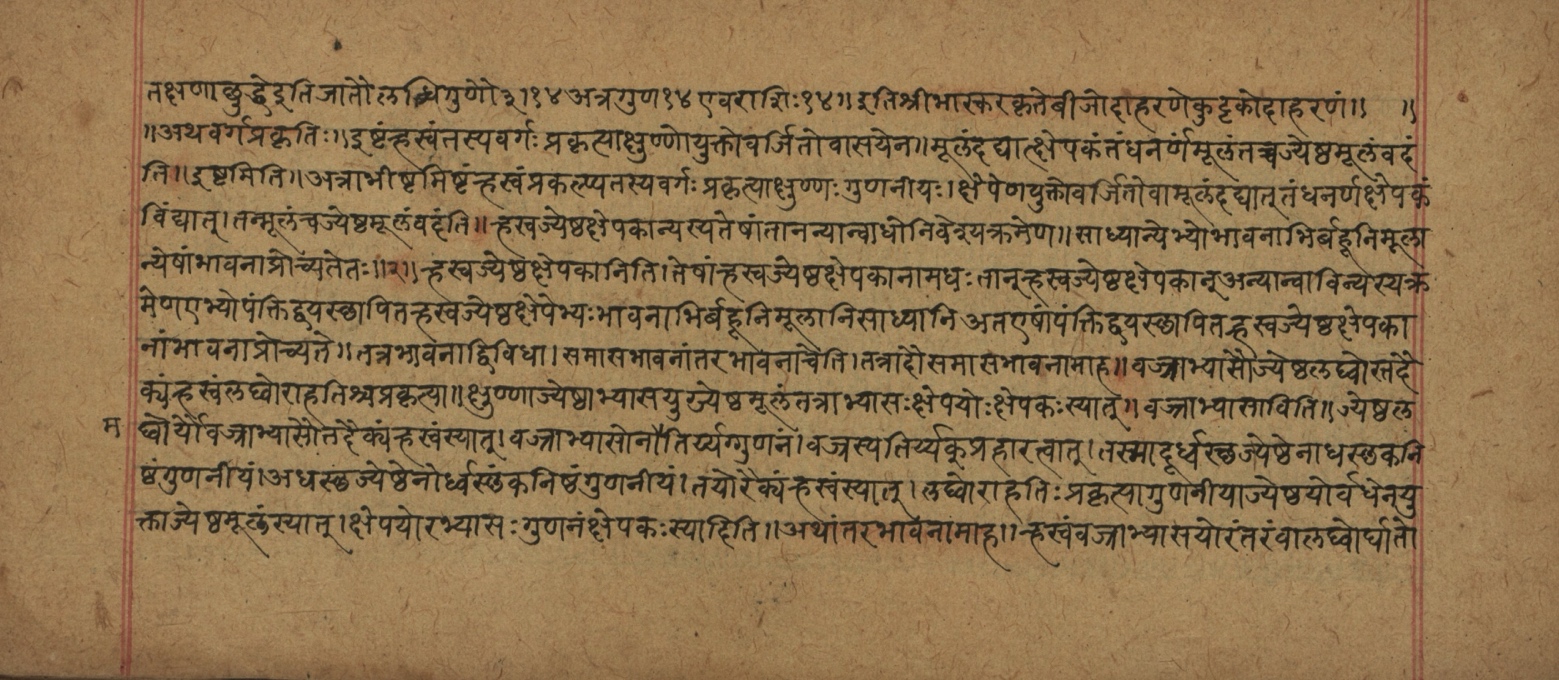 तक्षणाछुद्धेइतिजातोलब्धिगुणो३।१४अत्रगुण१४एवराशिः१४॥इतिश्रीभास्करकृतेबीजोदाहरणेकुट्टकोदाहरणं॥ ॥
॥अथवर्गप्रकृतिः॥इष्टंन्हस्वंतस्यवर्गः प्रकृत्याक्षुण्णोयुक्तोवर्जितोवासयेन॥मूलंदद्यात्क्षेपकंतंधनर्णंमूलंतच्चज्येष्ठमूलंवदं
ति॥इष्टमिति॥अत्राभीष्टमिष्टंन्हस्वंप्रकल्प्यतस्यवर्गः प्रकृत्याक्षुण्णः गुणनीयः।क्षेपेणयुक्तोवर्जितोवामूलंदद्यात्तंधनर्णक्षेपकं
विंद्यात्।तन्मूलंचज्येष्ठमूलंवदंति॥न्हस्वज्येष्ठक्षेपकान्यस्यतेषांतानन्यान्वाधोनिवेश्यक्रमेण॥साध्यान्येभ्योभावनाभिर्बहूनिमूला
न्येषांभावनाप्रोच्यतेतः॥२॥न्हस्वज्येष्ठक्षेपकानिति।तेषांन्हस्वज्येष्ठक्षेपकानामधः तान्न्हस्वज्येष्ठक्षेपकान्अन्यान्वाविन्यस्यक्र
मेणएभ्योपंक्तिद्वयस्छापितन्हस्वज्येष्ठक्षेपेभ्यःभावनाभिर्बहूनिमूलानिसाध्यानिअतएषांपंक्तिद्वयस्छापितन्हस्वज्येष्ठक्षेपका
नांभावनाप्रोच्यते॥तत्रभावनाद्विविधा।समासभावनांतरभावनाचेति।तत्रादौसमासभावनामाह॥वज्राभ्यासौज्येष्ठलघ्वोस्तदै
क्यंन्हस्वंलघ्वोराहतिश्चप्रकृत्या॥क्षुण्णाज्येष्ठाभ्यासयुज्येष्ठमूलंतत्राभ्यासःक्षेपयोःक्षेपकःस्यात्॥वज्राभ्यासाविति॥ज्येष्ठल
घ्वोर्यौवज्राभ्यासौतदैक्यंन्हस्वंस्यात्।वज्राभ्यासोनातिर्य्यग्गुणनं।वज्रस्यतिर्य्यक्प्रहारत्वात्।तस्मादूर्ध्वस्छज्येष्ठेनाधस्छकनि
ष्ठंगुणनीयं।अधस्छज्येष्ठेनोर्ध्वस्छंकनिष्ठंगुणनीयं।तयोरैक्यंन्हस्वंस्यात्।लघ्वोराहतिःप्रकृत्यागुणनीयाज्येष्ठयोर्वधेनयु
क्ताज्येष्ठमूलंस्यात्।क्षेपयोरभ्यासःगुणनंक्षेपकःस्यादिति॥अथांतरभावनामाह॥न्हस्वंवज्राभ्यासयोरंतरंवालघ्वोर्घातो